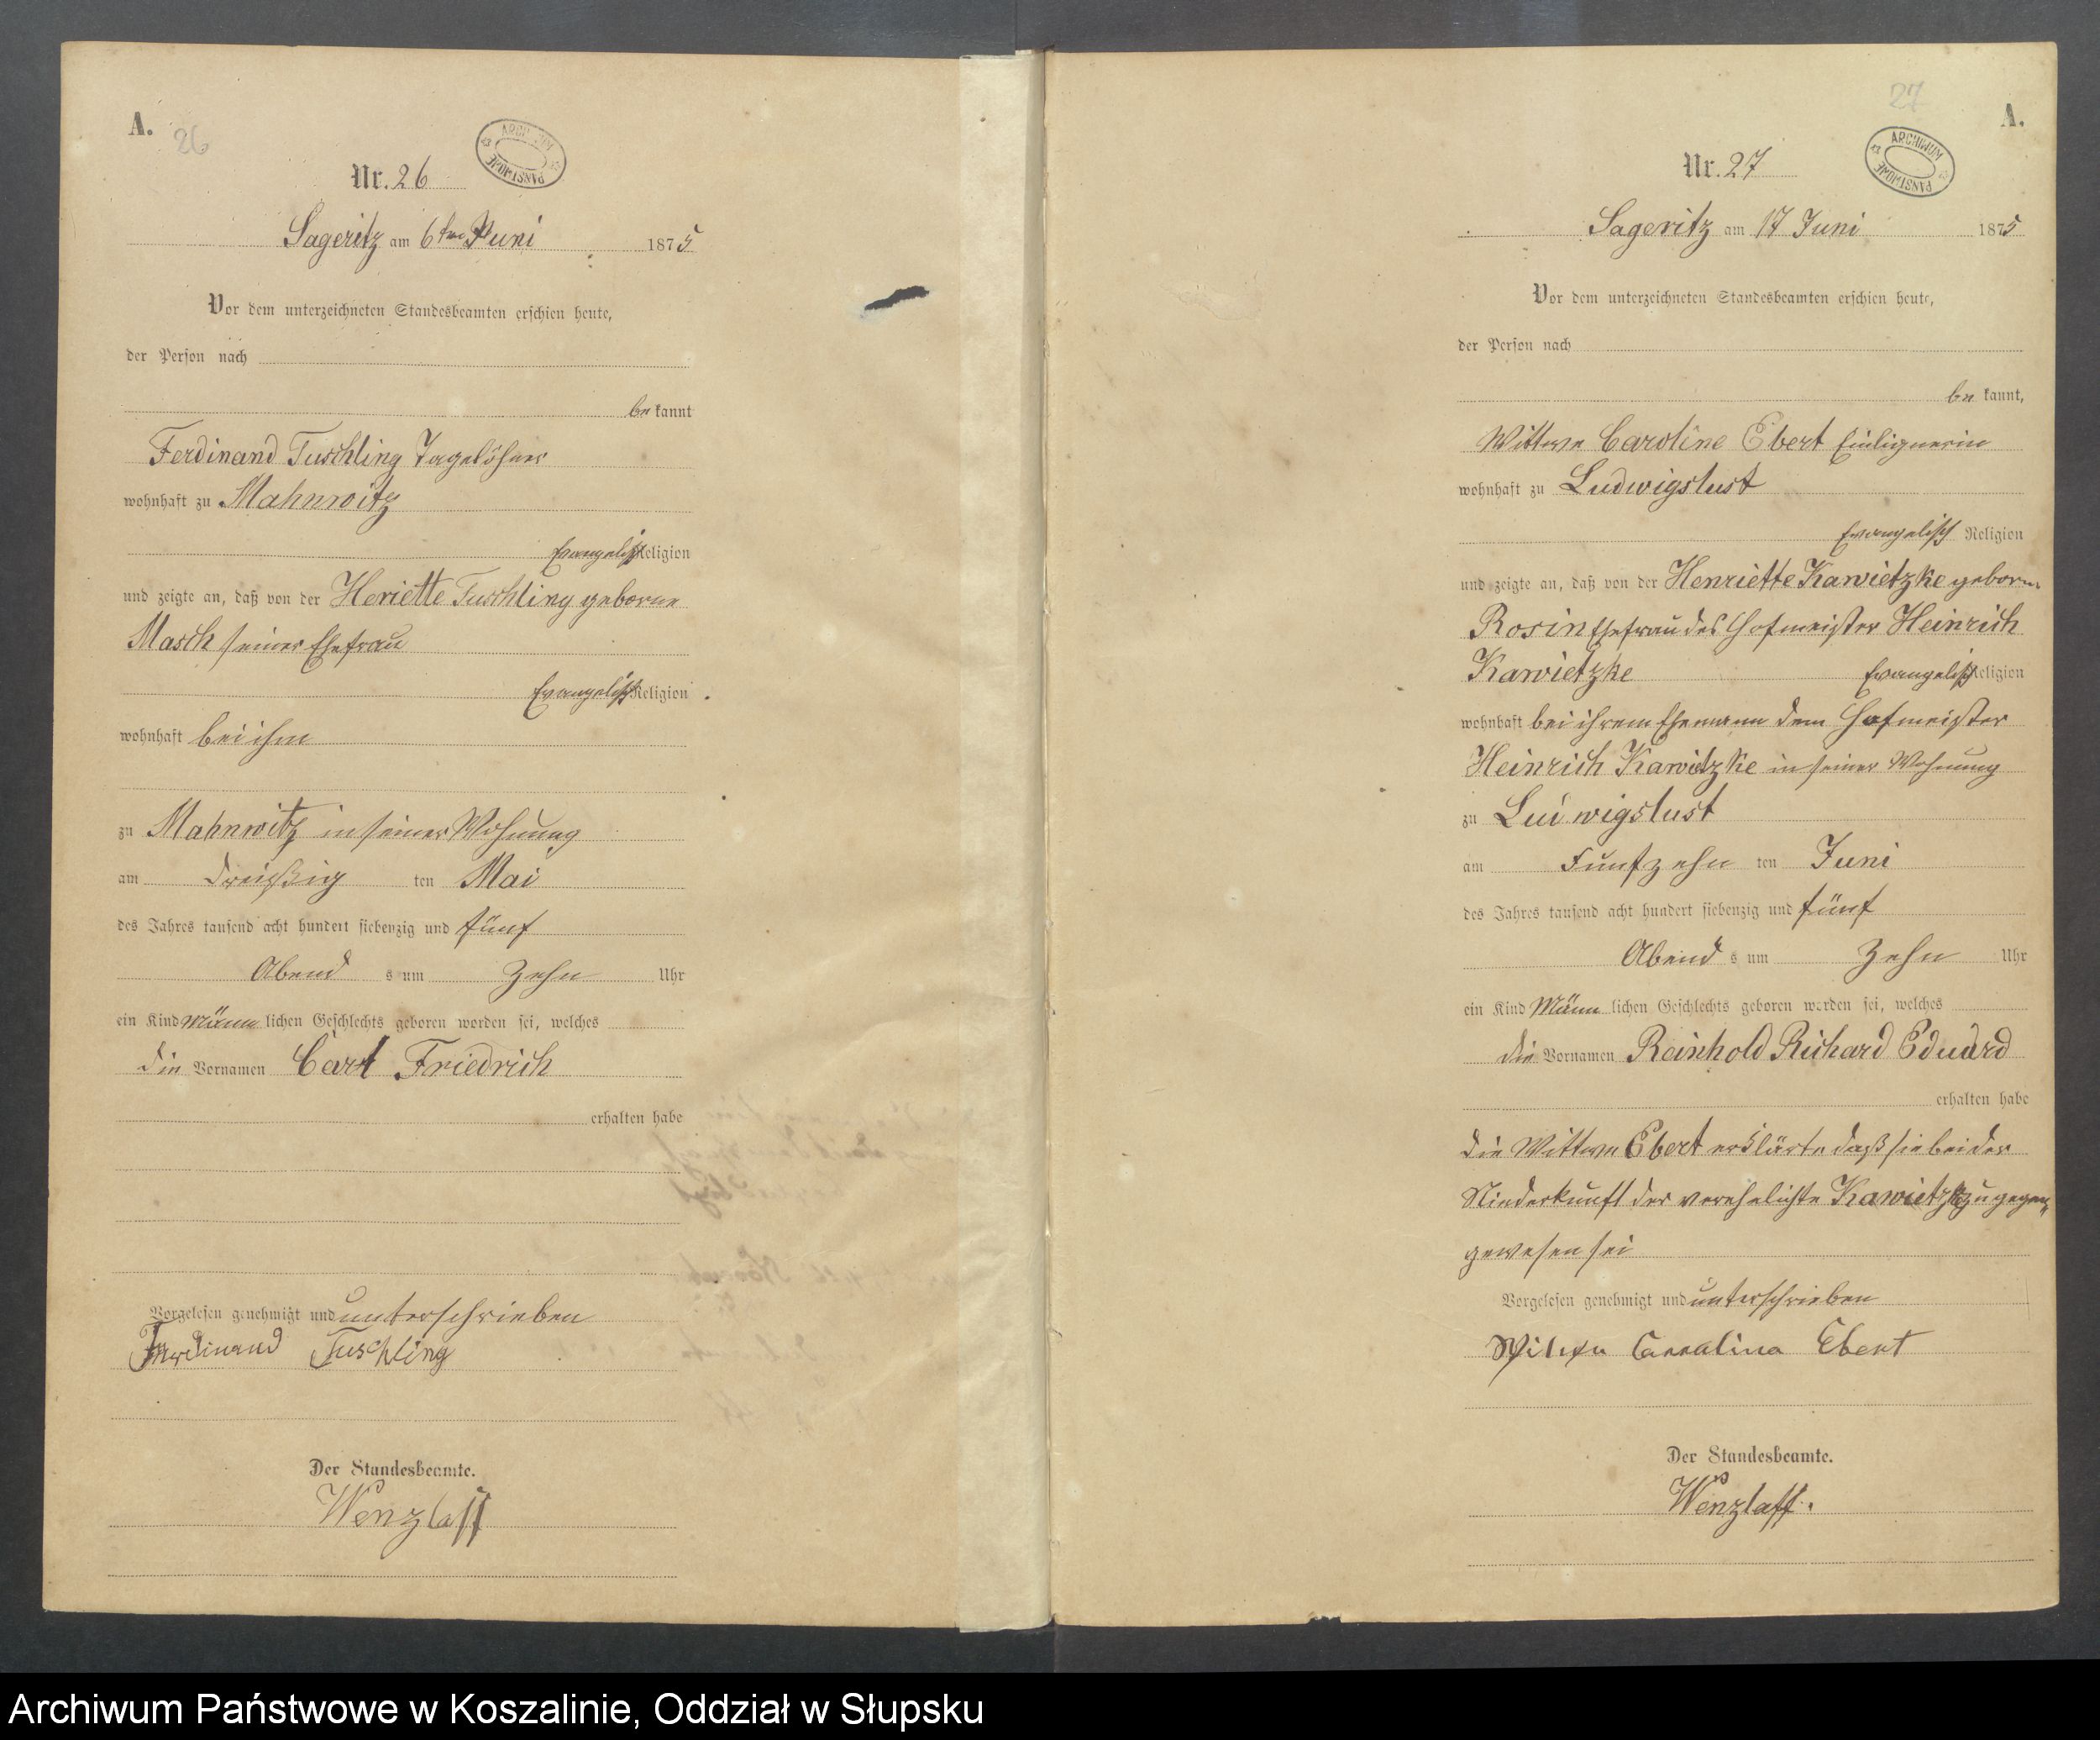 A.
26
ARCHIWUM PAŃSTWOWE
Nr. 26
Sageritz am 6ten Juni 1875
Vor dem unterzeichneten Standesbeamten erschien heute,
der Person nach
be kannt
Ferdinand Tuschling Tagelöhner
wohnhaft zu Mahnwitz
Evangelisch Religion
und zeigte an, daß von der Heriette Tuschling geborne
Masch seiner Ehefrau
Evangelisch Religion
wohnhaft bei ihm
zu Mahnwitz in seiner Wohnung
am dreißig ten Mai
des Jahres tausend acht hundert siebenzig und fünf
Abend s um Zehn Uhr
ein Kind Männ lichen Geschlechts geboren worden sei, welches
die Vornamen Carl Friedrich
erhalten habe
Vorgelesen genehmigt und unterschrieben
Ferdinand Tuschling
Der Standesbeamte.
Wenzlaff
27
A.
ARCHIWUM PAŃSTWOWE
Nr. 27
Sageritz am 17 Juni 1875
Vor dem unterzeichneten Standesbeamten erschien heute,
der Person nach
be kannt,
Wittwe Caroline Ebert Einlignerin
wohnhaft zu Ludwigslust
Evangelisch Religion
und zeigte an, daß von der Henriette Kawietzke geborne
Rosin Ehefrau des Hofmeister Heinrich
Kawietzke Evangelisch Religion
wohnhaft bei ihrem Ehemann dem Hofmeister
Heinrich Kawietzke in seiner Wohnung
zu Ludwigslust
am Fünfzehn ten Juni
des Jahres tausend acht hundert siebenzig und fünf
Abend s um Zehn Uhr
ein Kind Männ lichen Geschlechts geboren worden sei, welches
die Vornamen Reinhold Richard Eduard
erhalten habe
die Wittwe Ebert erklärte daß sie bei der
Niederkunft der verehelichte Kawietzke zugegen
gewesen sei
Vorgelesen genehmigt und unterschrieben
Carralina Ebert
Der Standesbeamte.
Wenzlaff.
Archiwum Państwowe w Koszalinie, Oddział w Słupsku